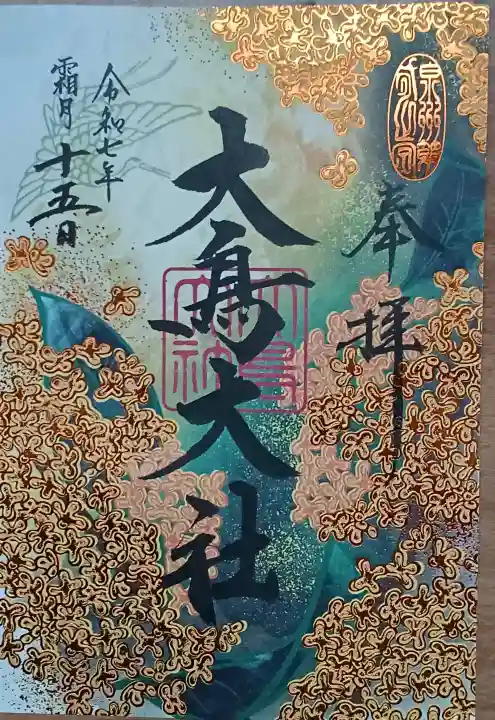 奉拝
大鳥大社
令和七年
霜月十五日